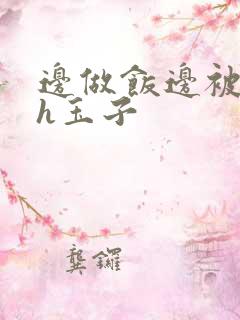 邊做飯邊被
h玉子
龔鑼